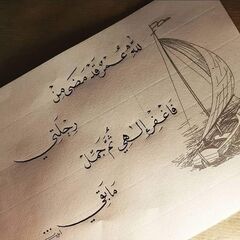 للهِ عُمرٌ قَد مَضى مِنْ
رِحلَتي
فَاغفِر إلـهي ثُمَّ جَمِّلْ
مَا بَقِي